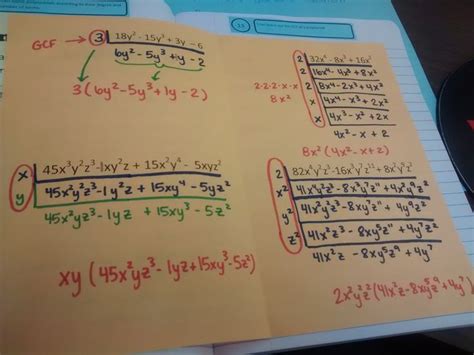 GCF → 3 | 18y² - 15y³ + 3y - 6
6y² - 5y³ + 1y - 2
3(6y² - 5y³ + 1y - 2)
x | 45x³y²z³ - 1xy²z + 15x²y⁴ - 5xyz²
y | 45x²y²z³ - 1y²z + 15xy⁴ - 5yz²
45x²yz³ - 1yz + 15xy³ - 5z²
xy(45x²yz³ - 1yz + 15xy³ - 5z²)
15
2 | 32x⁴ - 8x³ + 16x²
2 | 16x⁴ - 4x³ + 8x²
2·2·2·x·x
2 | 8x⁴ - 2x³ + 4x²
8x²
x | 4x⁴ - x³ + 2x²
x | 4x³ - x² + 2x
4x² - x + 2
8x²(4x² - x + 2)
2 | 82x⁴y²z³ - 16x³y⁷z¹¹ + 8x²y⁹z²
x² | 41x⁴y²z³ - 8x³y⁷z¹¹ + 4x²y⁹z²
y² | 41x²y²z³ - 8xy⁷z¹¹ + 4y⁹z²
z² | 41x²z³ - 8xy⁵z¹¹ + 4y⁷z²
41x²z - 8xy⁵z⁹ + 4y⁷
2x²y²z²(41x²z - 8xy⁵z⁹ + 4y⁷)